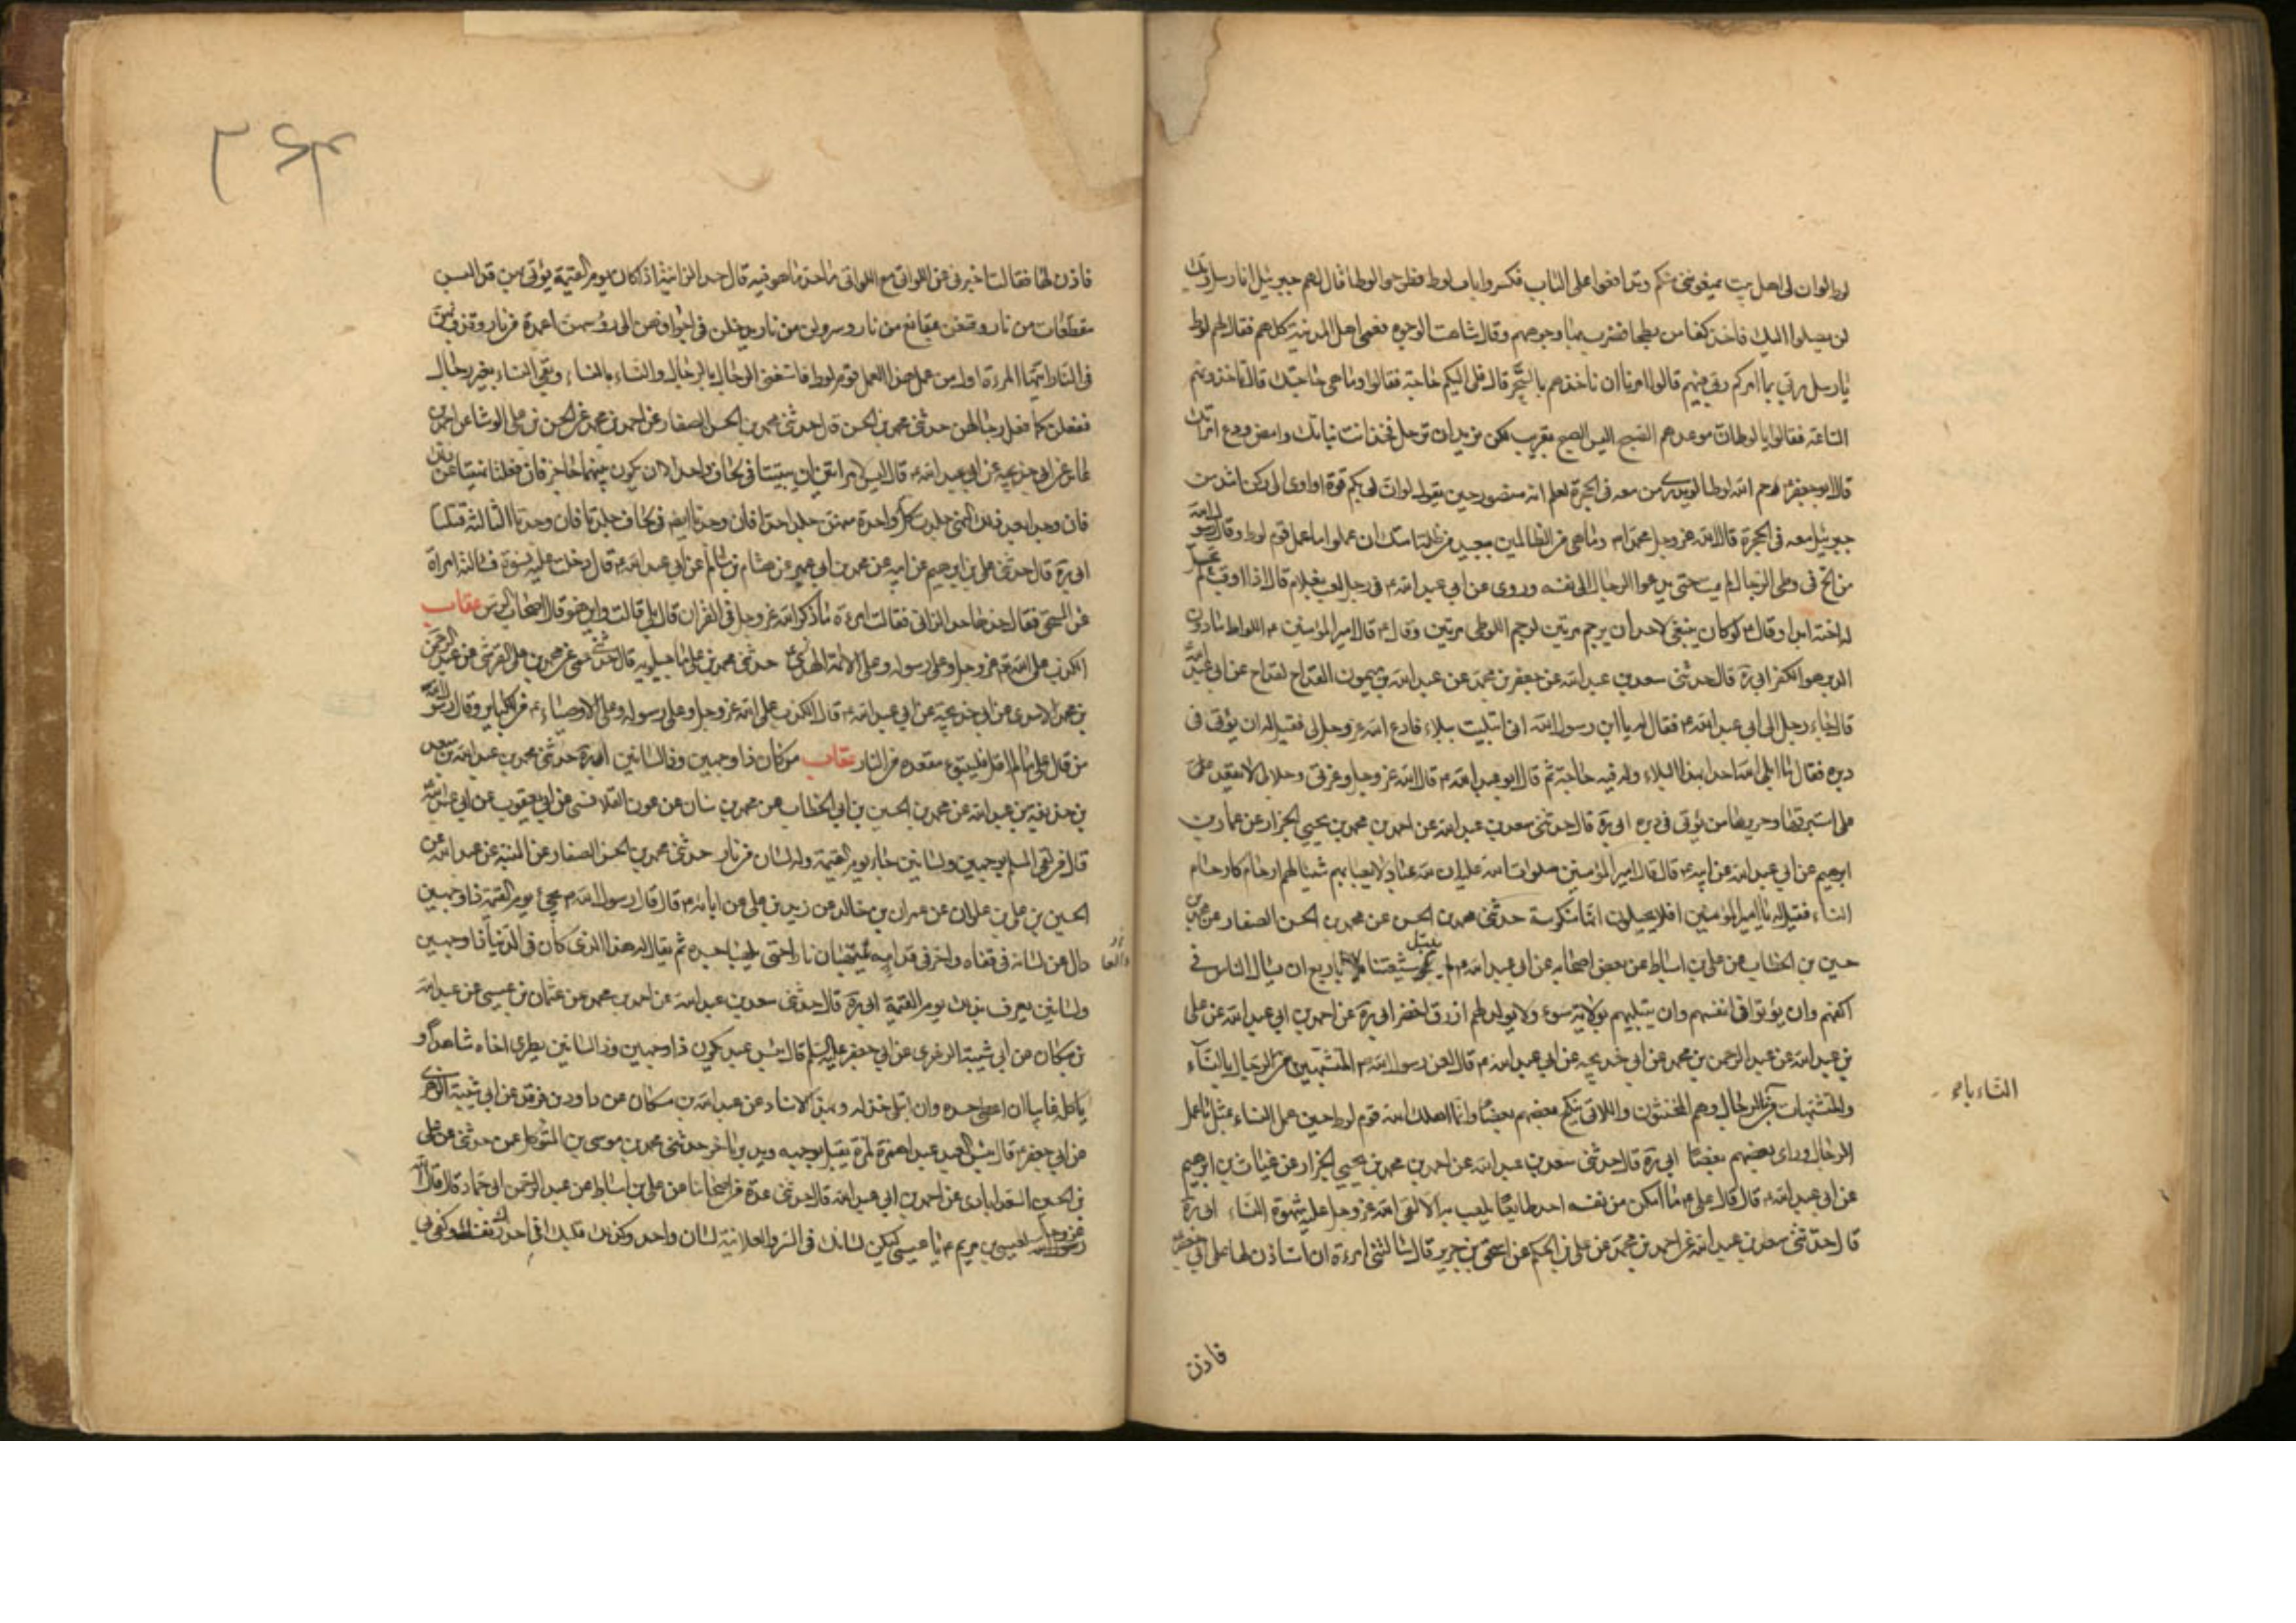 لوط لوان لى اهل بيت يمنعونى منكم وتدافعوا على الباب فكسروا باب لوط وطرحوا لوطا فقال لهم جبرئيل انا رسل ربك
لن يصلوا اليك فاخذ كفا من بطحا فضرب بها وجوههم وقال شاهت الوجوه فعمى اهل المدينة كلهم فقال لهم لوط
يا رسل ربى بما امركم ربى فيهم قالوا امرنا ان ناخذهم بالسحر قال فلى اليكم حاجة فقالوا وما هى حاجتك قال تاخذونهم
الساعة فقالوا يا لوط ان موعدهم الصبح اليس الصبح بقريب لمن يريد ان توخذ فخذ انت بناتك وامض ودع امراتك
قال ابو جعفر رحم الله لوطا لو يدرى من معه فى الحجرة لعلم انه منصور حين يقول لو ان لى بكم قوة او اوى الى ركن شديد
جبرئيل معه فى الحجرة قال الله عز وجل لمحمد وما هى من الظالمين ببعيد من ظلمة امتك ان عملوا ما عمل قوم لوط وقال رسول الله
من الح فى وطى الرجال لم يمت حتى يدعو الرجال الى نفسه وروى عن ابى عبد الله فى رجل لعب بغلام قال اذا اوقب لم تحل
له اخته ابدا وقال لو كان ينبغى لاحد ان يرجم مرتين لرجم اللوطى مرتين وقال قال امير المؤمنين اللواط ما دون
الدبر هو الكفر ابى ره قال حدثنى سعد بن عبد الله عن جعفر بن محمد عن عبد الله بن ميمون القداح عن ابى عبد الله
قال جاء رجل الى ابى عبد الله فقال له يا ابن رسول الله انى ابتليت ببلاء فادع الله عز وجل لى فقيل له ان يؤتى فى
دبره فقال ما ابلى الله احدا بهذا البلاء وله فيه حاجة ثم قال ابو عبد الله قال الله عز وجل وعزتى وجلالى لا يقعد على
على استبرقها وحريرها من يؤتى فى دبره ابى ره قال حدثنى سعد بن عبد الله عن احمد بن محمد بن يحيى الخزاز عن غياث بن
ابرهيم عن ابى عبد الله عن ابيه قال قال امير المؤمنين صلوات الله عليه ان لله عبادا لا يعبا بهم شيئا لهم ارحام كارحام
النساء فقيل له يا امير المؤمنين افلا يحبلون انها منكوسة حدثنى محمد بن الحسن عن محمد بن الحسن الصفار عن محمد بن
حسين بن الخطاب عن على بن اسباط عن بعض اصحابه عن ابى عبد الله لم يبتل شيعتنا باربع ان يسال الناس فى
اكفهم وان يؤتوا فى انفسهم وان يبتليهم بولاية سوء ولا يولد لهم ازرق اخضر ابى ره عن احمد بن ابى عبد الله عن على
بن عبد الله عن عبد الرحمن بن محمد عن ابى خديجه عن ابى عبد الله قال لعن رسول الله المتشبهين من الرجال بالنساء
والمتشبهات من الرجال وهم المخنثون واللاتى ينكح بعضهم بعضا وانما اهلك الله قوم لوط حين عمل النساء مثل ما عمل
الرجال وراى بعضهم بعضا ابى ره قال حدثنى سعد بن عبد الله عن احمد بن محمد بن يحيى الخزاز عن غياث بن ابرهيم
عن ابى عبد الله قال قال على ما امكن من نفسه احد طايعا يلعب به الا القى الله عز وجل عليه شهوة النساء ابى ره
قال حدثنى سعد بن عبد الله عن احمد بن محمد عن على بن الحكم عن اسحق بن جرير قال سالتنى امرءة ان استاذن لها على ابى جعفر
النساء با
فاذن
٣۶٣
فاذن لها فقالت اخبرنى عن اللواتى مع اللواتى ما حد ما هو فيه قال حد الزانية اذا كان يوم القيمة يؤتى بهن قد البسن
مقطعات من نار وقنعن بمقانع من نار وسرولن من نار وادخلن فى اجوافهن الى رؤسهن اعمدة من نار وقذف بهن
فى النار ايتها المراة اول من عمل هذا العمل قوم لوط فاستغنى الرجال بالرجال والنساء بالنساء وبقى النساء بغير رجال
ففعلن كما فعل رجالهن حدثنى محمد بن الحسن قال حدثنى محمد بن الحسن الصفار عن احمد بن محمد عن الحسن بن على الوشا عن احمد بن
عائذ عن ابى خديجه عن ابى عبد الله قال ليس لامراتين ان يبيتا فى لحاف واحد الا ان يكون بينهما حاجز فان فعلتا نهيتا عن ذلك
فان وجدا بعد ذلك النهى جلدت كل واحدة منهن حدا حدا فان وجدتا ايضا فى لحاف جلدتا فان وجدتا الثالثة قتلتا
ابى ره قال حدثنى على بن ابرهيم عن ابيه عن محمد بن ابى عمير عن هشام بن سالم عن ابى عبد الله قال دخلت عليه نسوة فسالته امراة
عن السحق فقال حدها حد الزانى فقالت امرءة ما ذكر الله عز وجل فى القران قال بلى قالت واين هو قال اصحاب الرس عقاب
الكذب على الله عز وجل وعلى رسوله وعلى الائمة الهدى حدثنى محمد بن على ماجيلويه قال حدثنى عمى عن محمد بن على القرشى عن عبد الرحمن
بن محمد الاسدى عن ابى خديجه عن ابى عبد الله قال الكذب على الله عز وجل وعلى رسوله وعلى الاوصياء من الكبائر وقال رسول الله
من قال على ما لم اقل فليتبوء مقعده من النار عقاب من كان ذا وجهين وذا لسانين ابى ره حدثنى محمد بن عبد الله بن سعد
بن عبد الله عن محمد بن الحسين بن ابى الخطاب عن محمد بن سنان عن عون القلانسى عن ابن ابى يعقوب عن ابى عبد الله
قال من لقى المسلم بوجهين ولسانين جاء يوم القيمة وله لسان من نار حدثنى محمد بن الحسن الصفار عن المنبه عن عبد الله عن
الحسين بن على بن علوان عن عمران بن خالد عن زيد بن على عن ابائه قال قال رسول الله يجئ يوم القيمة ذا وجهين
دالعا لسانه فى قفاه واخر فى قدامه يلتهبان نارا حتى يلهبا جسده ثم يقال له هذا الذى كان فى الدنيا ذا وجهين
ولسانين يعرف بذلك يوم القيمة ابى ره قال حدثنى سعد بن عبد الله عن احمد بن محمد عن عثمان بن عيسى عن عبد الله
بن مسكان عن ابى شيبة الزهرى عن ابى جعفر عليه السلم قال بئس عبد يكون ذا وجهين وذا لسانين يطرى اخاه شاهدا و
ياكله غايبا ان اعطى حسده وان ابتلى خذله وبهذا الاسناد عن عبد الله بن مسكان عن داود بن فرقد عن ابى شيبة الزهرى
عن ابى جعفر قال بئس العبد عبد همزة لمزة يقبل بوجه ويدبر باخر حدثنى محمد بن موسى بن المتوكل عن حدثنى عن على
بن الحسين السعدابادى عن احمد بن ابى عبد الله قال حدثنى عدة من اصحابنا عن على بن اسباط عن عبد الرحمن ابى حماد قال قال الله
عز وجل لعيسى بن مريم يا عيسى ليكن لسانك فى السر والعلانية لسان واحد وكذلك قلبك انى احذرك نفسك وكفى بى